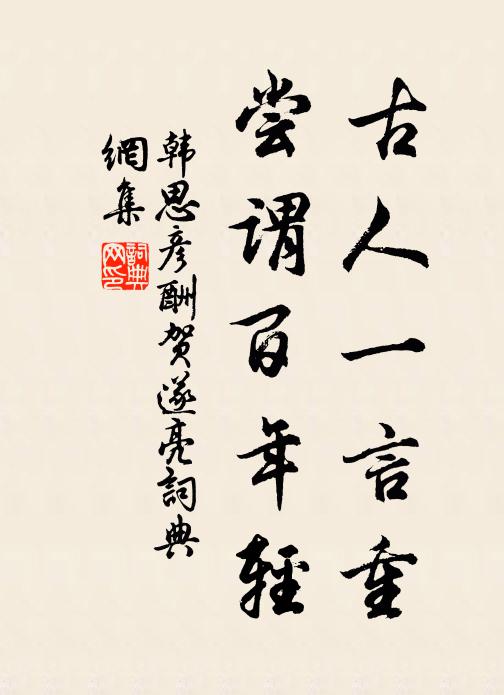 古人一言重
尝谓百年轻
韩思彦酬贺遂亮詞典
網集
詞典网印